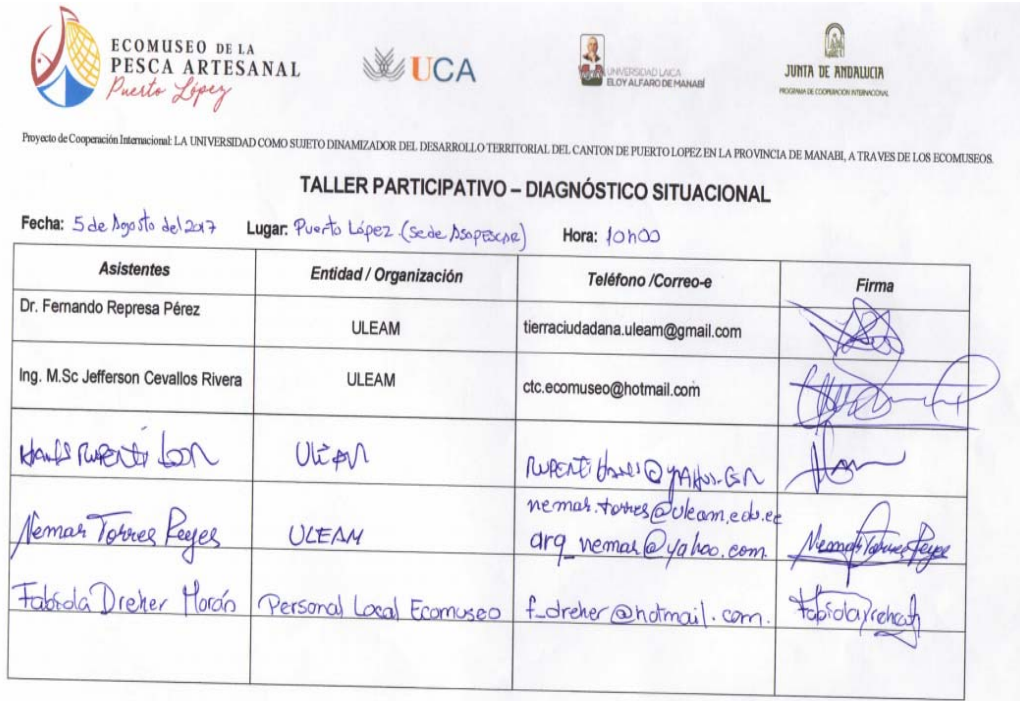 ECOMUSEO DE LA
PESCA ARTESANAL
Puerto López
UCA
UNIVERSIDAD LAICA
ELOY ALFARO DE MANABÍ
JUNTA DE ANDALUCIA
PROGRAMA DE COOPERACION INTERNACIONAL
Proyecto de Cooperación Internacional: LA UNIVERSIDAD COMO SUJETO DINAMIZADOR DEL DESARROLLO TERRITORIAL DEL CANTON DE PUERTO LOPEZ EN LA PROVINCIA DE MANABI, A TRAVES DE LOS ECOMUSEOS.
TALLER PARTICIPATIVO – DIAGNÓSTICO SITUACIONAL
Fecha: 5 de Agosto del 2017 Lugar: Puerto López (Sede Asopescar) Hora: 10h00
Asistentes Entidad / Organización Teléfono /Correo-e Firma
Dr. Fernando Represa Pérez ULEAM tierraciudadana.uleam@gmail.com
Ing. M.Sc Jefferson Cevallos Rivera ULEAM ctc.ecomuseo@hotmail.com
RUPERTI ULEAM
nemar.torres@uleam.edu.ec
Nemar Torres Reyes ULEAM arq_nemar@yahoo.com. Nemar Torres Reyes
Fabiola Dreher Morán Personal Local Ecomuseo f_dreher@hotmail.com. Fabiola Dreher